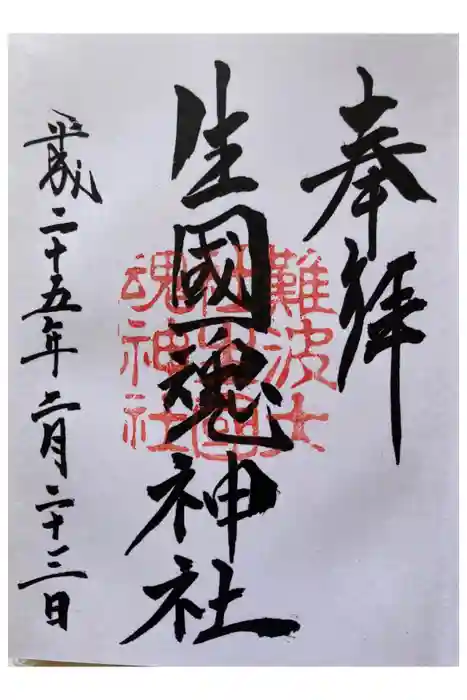 奉拝
生國魂神社
平成二十五年二月二十三日
難波大
社生國
魂神社